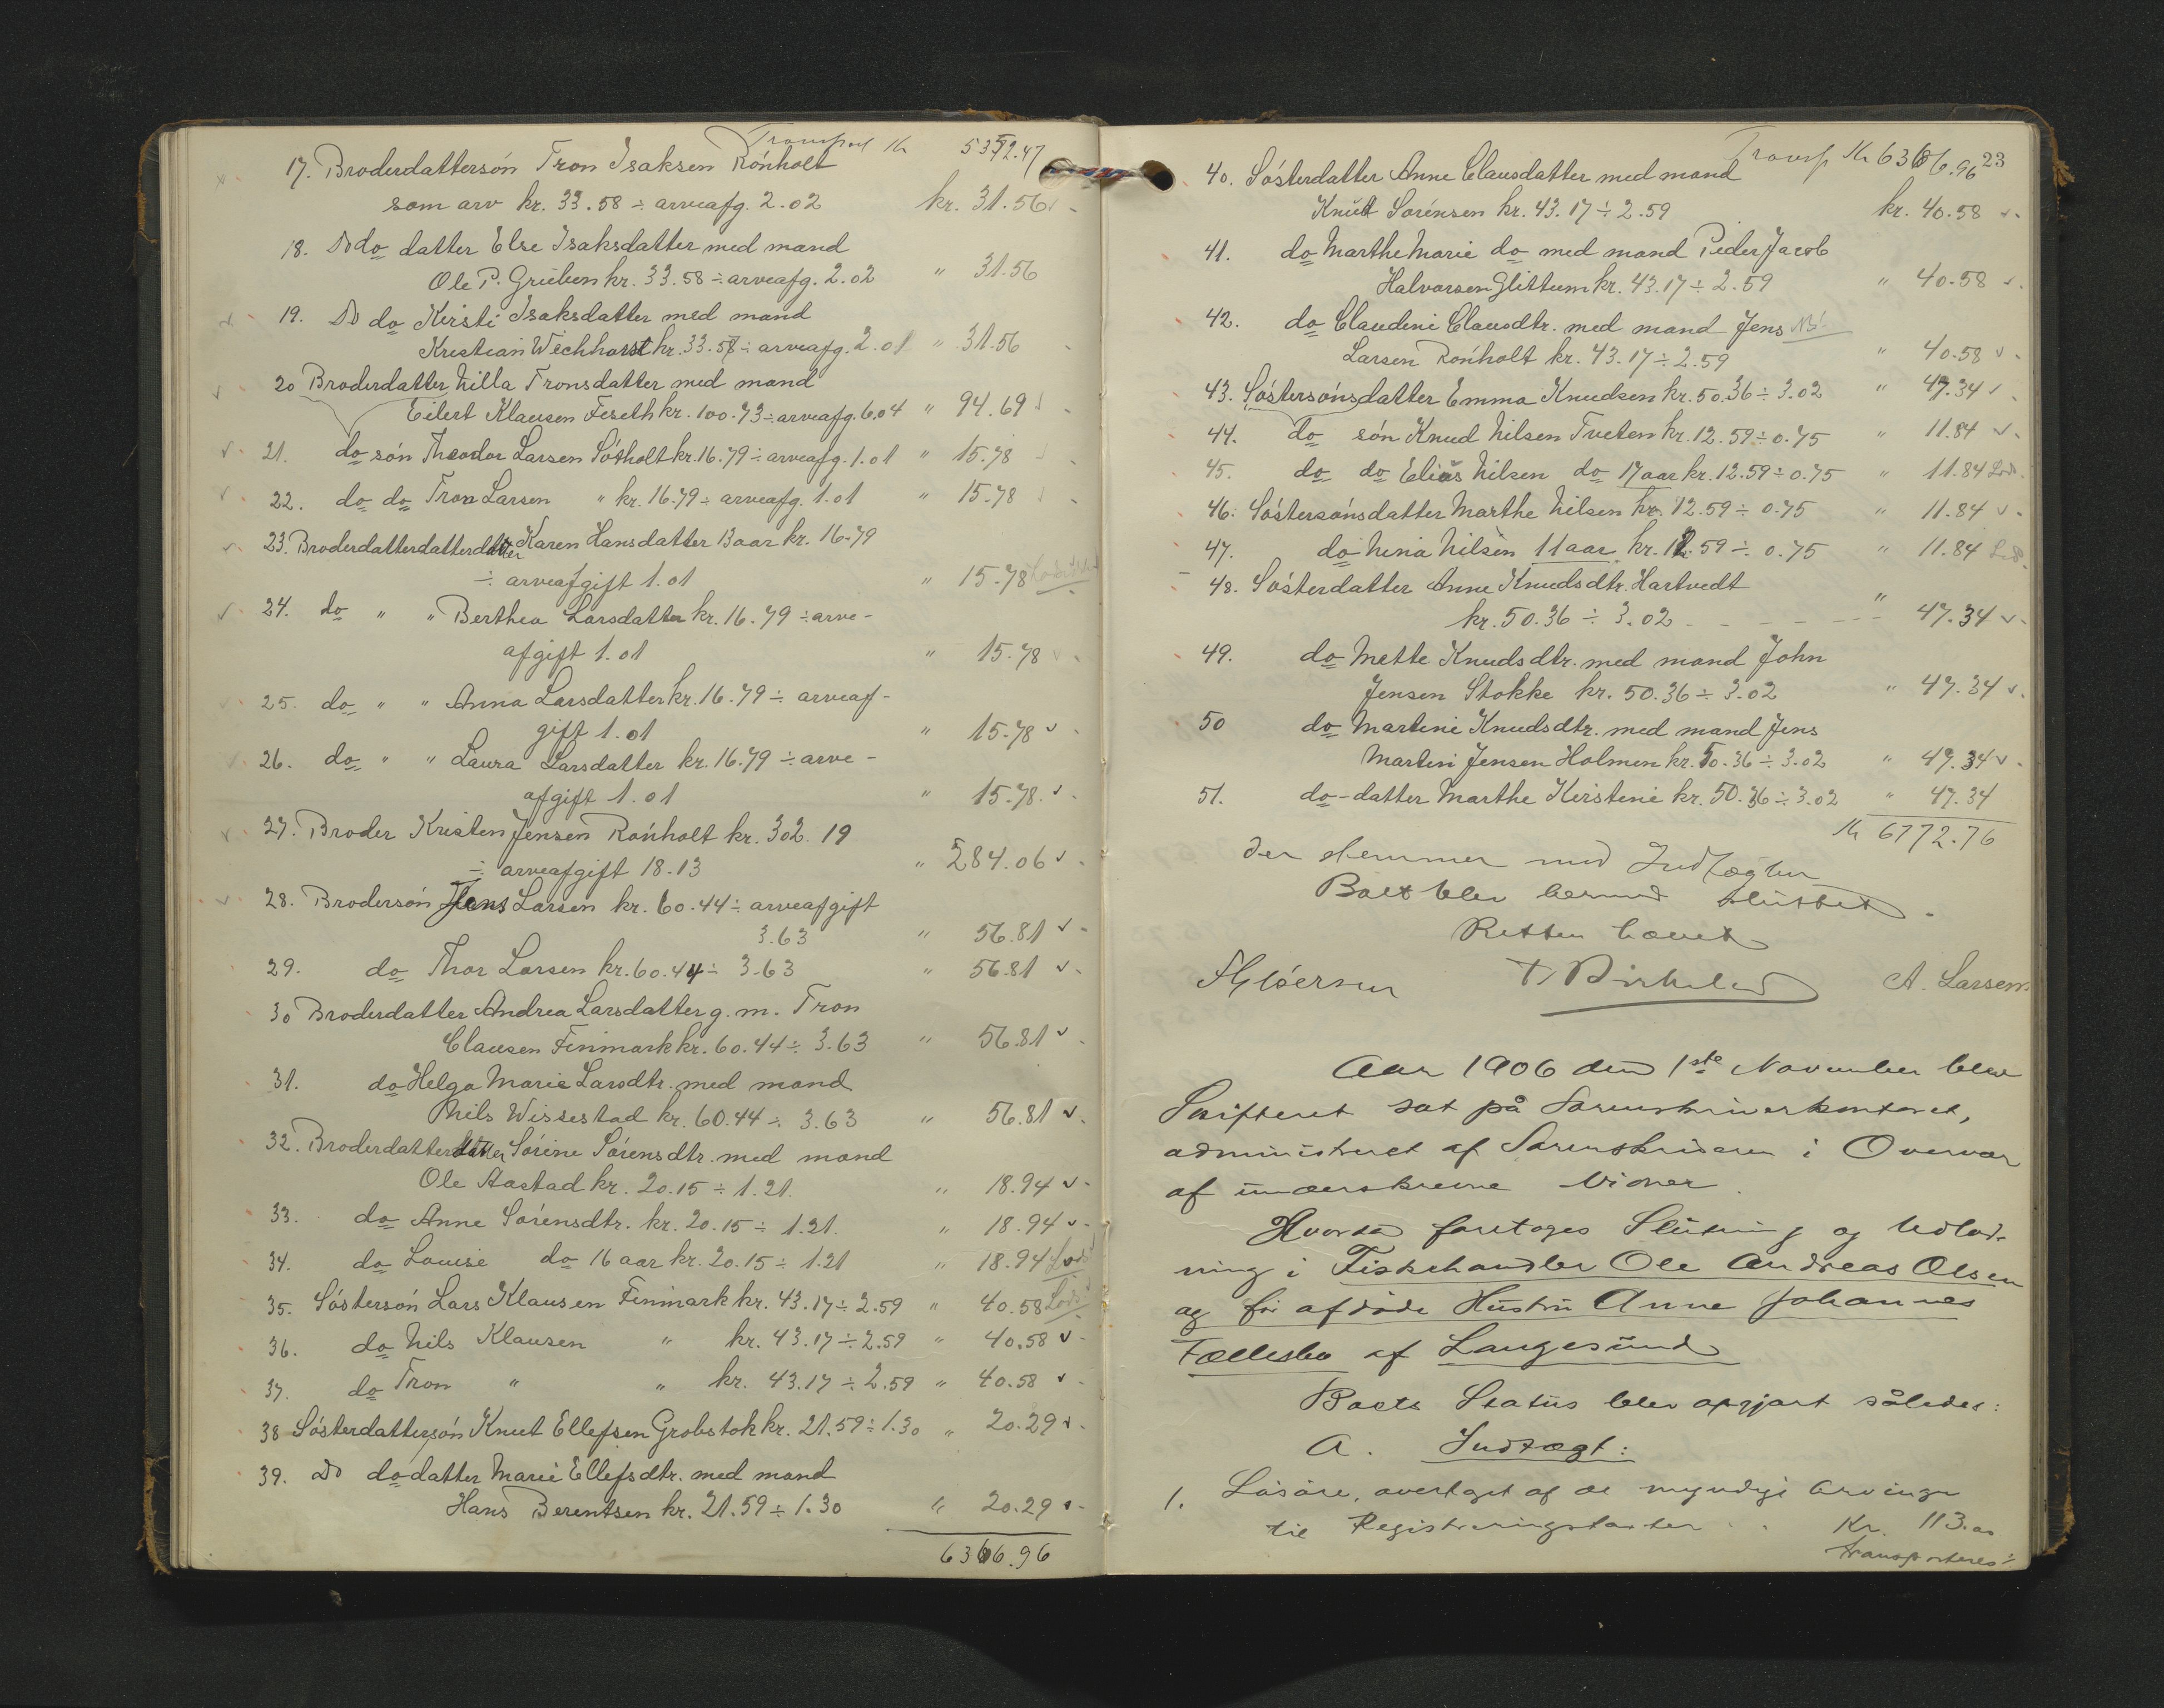 Transport Kr 5372.47
17. Broderdattersón Tron Isaksen Rónholt
som arv kr. 33.58 ÷ arveafg. 2.02 kr. 31.56
18. Do do datter Else Isaksdatter med mand
Ole P. Gruben kr. 33.58 ÷ arveafg. 2.02 " 31.56
19. Do do Kirsti Isaksdatter med mand
Kristian Wichhorst kr. 33.57 ÷ arveafg. 2.01 " 31.56
20 Broderdatter Nilla Tronsdatter med mand
Eilert Klausen Feseth kr. 100.73 ÷ arveafg. 6.04 " 94.69
21. do són Theodor Larsen Sótholt kr. 16.79 ÷ arveafg. 1.01 " 15.78
22. do do Tron Larsen " kr. 16.79 ÷ arveafg. 1.01 " 15.78
23. Broderdatterdatterdatter Karen Hansdatter Baar kr. 16.79
÷ arveafgift 1.01 " 15.78
24. do " " Berthea Larsdatter kr. 16.79 ÷ arve-
afgift 1.01 " 15.78
25. do " " Anna Larsdatter kr. 16.79 ÷ arveaf-
gift 1.01 " 15.78
26. do " " Laura Larsdatter kr. 16.79 ÷ arve-
afgift 1.01 " 15.78
27. Broder Kristen Jensen Rónholt kr. 302.19
÷ arveafgift 18.13 " 284.06
28. Brodersón Jens Larsen kr. 60.44 ÷ arveafgift
3.63 " 56.81
29. do Thor Larsen kr. 60.44 ÷ 3.63 " 56.81
30 Broderdatter Andrea Larsdatter g. m. Tron
Clausen Finmark kr. 60.44 ÷ 3.63 " 56.81
31. do Helga Marie Larsdtr. med mand
Nils Wissestad kr. 60.44 ÷ 3.63 " 56.81
32. Broderdatterdatter Sórine Sórensdtr. med mand
Ole Aastad kr. 20.15 ÷ 1.21. " 18.94
33. do Anne Sórensdtr. kr. 20.15 ÷ 1.21. " 18.94
34. do Louise do 16 aar kr. 20.15 ÷ 1.21 " 18.94
35. Sóstersón Lars Klausen Finmark kr. 43.17 ÷ 2.59 " 40.58
36. do Nils Klausen " kr. 43.17 ÷ 2.59 " 40.58
37. do Tron " " kr. 43.17 ÷ 2.59 " 40.58
38 Sósterdattersón Knut Ellefsen Grobstok kr. 21.59 ÷ 1.30 " 20.29
39. Do do datter Marie Ellefsdtr. med mand
Hans Berentsen kr. 21.59 ÷ 1.30 " 20.29
6366.96
Transp Kr 6366.96 23
40. Sósterdatter Anne Clausdatter med mand
Knut Sórensen kr. 43.17 ÷ 2.59 kr. 40.58
41. do Marthe Marie do med mand Peder Jacob
Halvorsen Glittum kr. 43.17 ÷ 2.59 " 40.58
42. do Claudine Clausdtr. med mand Jens
Larsen Rónholt kr. 43.17 ÷ 2.59 " 40.58
43. Sóstersónsdatter Emma Knudsen kr. 50.36 ÷ 3.02 " 47.34
44. do són Knud Nilsen Tveten kr. 12.59 ÷ 0.75 " 11.84
45. do do Elias Nilsen do 17 aar kr. 12.59 ÷ 0.75 " 11.84
46. Sóstersónsdatter Marthe Nilsen kr. 12.59 ÷ 0.75 " 11.84
47. do Nina Nilsen 11 aar kr. 12.59 ÷ 0.75 " 11.84
48. Sósterdatter Anne Knudsdtr. Hartvedt
kr. 50.36 ÷ 3.02 - - - - - " 47.34
49. do Mette Knudsdtr. med mand John
Jensen Stokke kr. 50.36 ÷ 3.02 " 47.34
50 do Martine Knudsdtr. med mand Jens
Martin Jensen Holmen kr. 50.36 ÷ 3.02 " 47.34
51. do-datter Marthe Kirstine kr. 50.36 ÷ 3.02 " 47.34
Kr 6772.76
der stemmer med Indtægten
Boet blev hermed sluttet.
Retten hævet
A. Larsen
Aar 1906 den 1ste November blev
Skifteret sat på Sorenskriverkontoret,
administreret af Sorenskriveren i Overvær
af underskrevne Vidner.
Hvorda foretoges Slutning og Udlod-
ning i Fiskehandler Ole Andreas Olsen
og før afdøde Hustru Anne Johannes
Fællesbo af Langesund
Boets Status blev opgjort således:
A. Indtægt:
1. Løsøre, overtaget af de myndige Arvinger
til Registreringstakster . . Kr. 113.00
transporteres